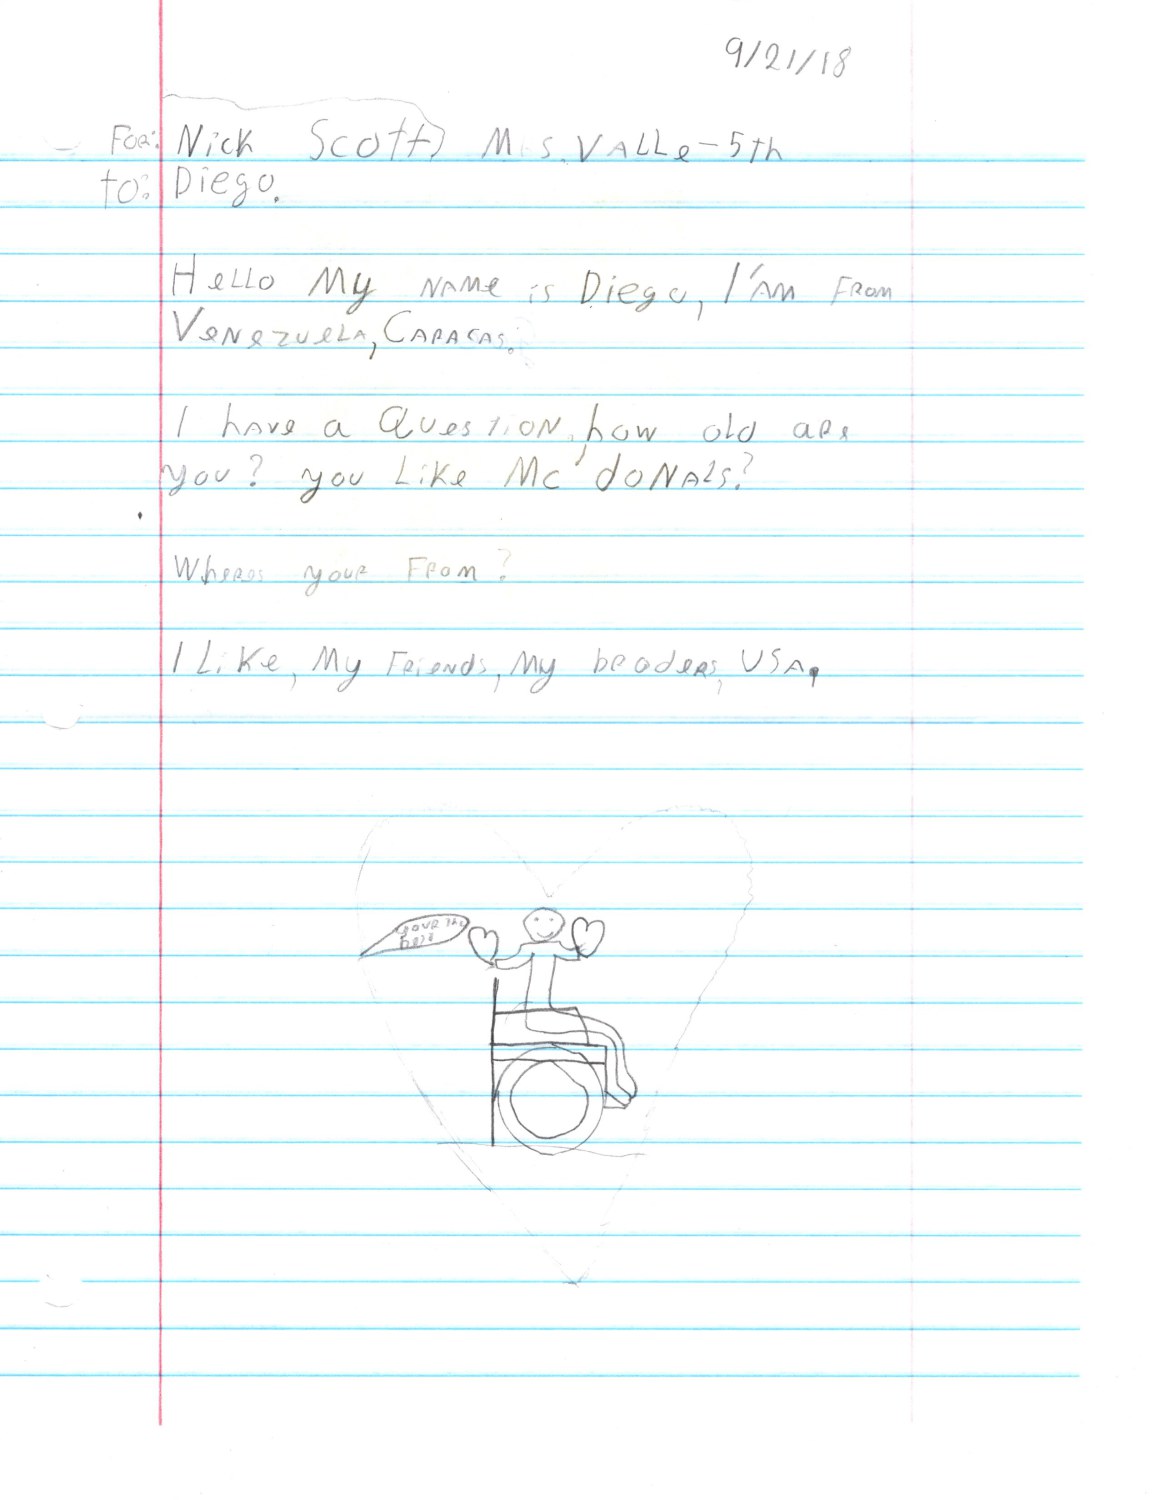 9/21/18
For: Nick Scott) Mrs. Valle-5th
to: Diego.
Hello My name is Diego, I'am From
Venezuela, Caracas.
I have a Question, how old are
you? you Like Mc'donals?
Wheres your From?
I Like, My Friends, My broders, USA,
your the
best